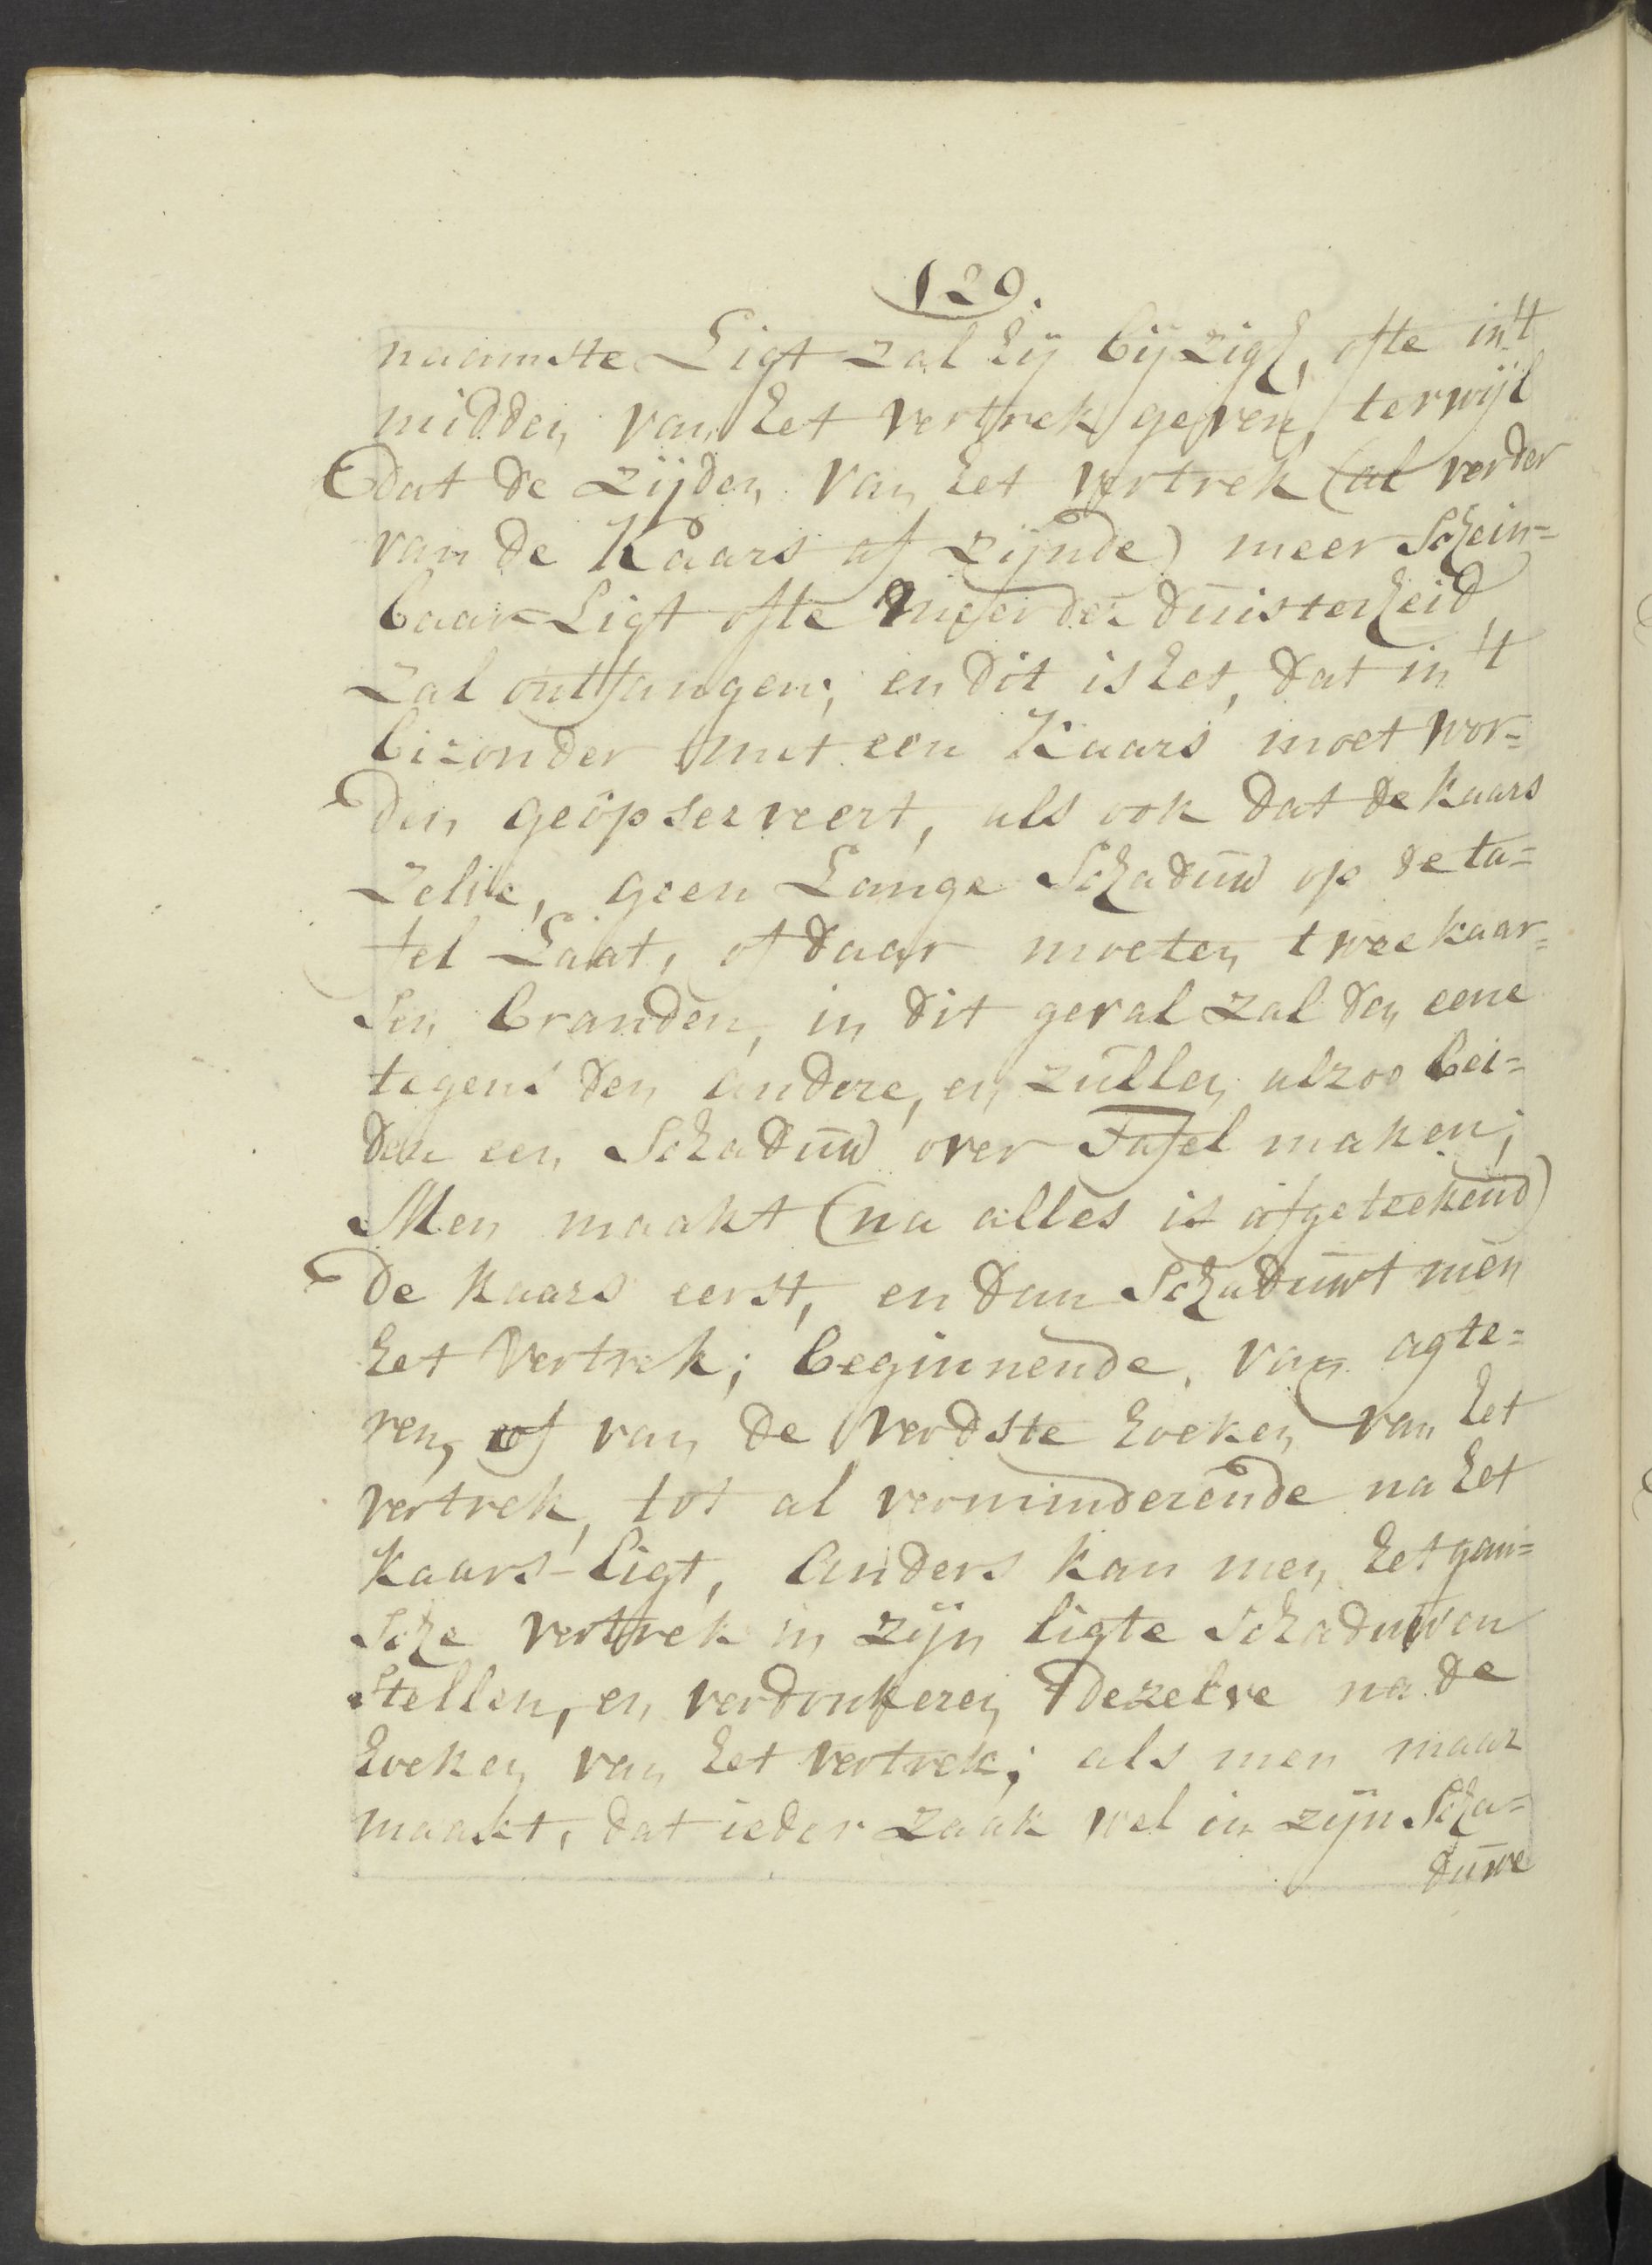 129.
naamste Ligt zal hij bij zigh, ofte in't
midden van het vertrek geven, terwijl
dat de zijden van het vertrek (al verder
van de Kaars af zijnde) meer Schein=
baar Ligt ofte meerder duisterheid
zal ontfangen; en dit is het, dat in 't
bizonder met een Kaars moet wor=
den geöpserveert, als ook dat de kaars
zelve, geen Lange Schaduw op de ta=
fel Laat, of daar moeten twee kaar=
sen branden, in dit geval zal den eene
tegens den andere, en zullen alzoo bei=
den een Schaduw over Tafel maken;
Men maakt (na alles is afgeteekend)
de kaars eerst, en dan Schaduwt men
het Vertrek; beginnende, van agte=
ren, of van de verdste hoeken van het
vertrek, tot al verminderende na het
kaars-ligt, anders kan men het gan=
sche vertrek in zijn ligte schaduwen
stellen, en verdonkeren dezelve na de
hoeken van het vertrek; als men maar
maakt, dat ieder zaak wel in zijn Scha=
duwe